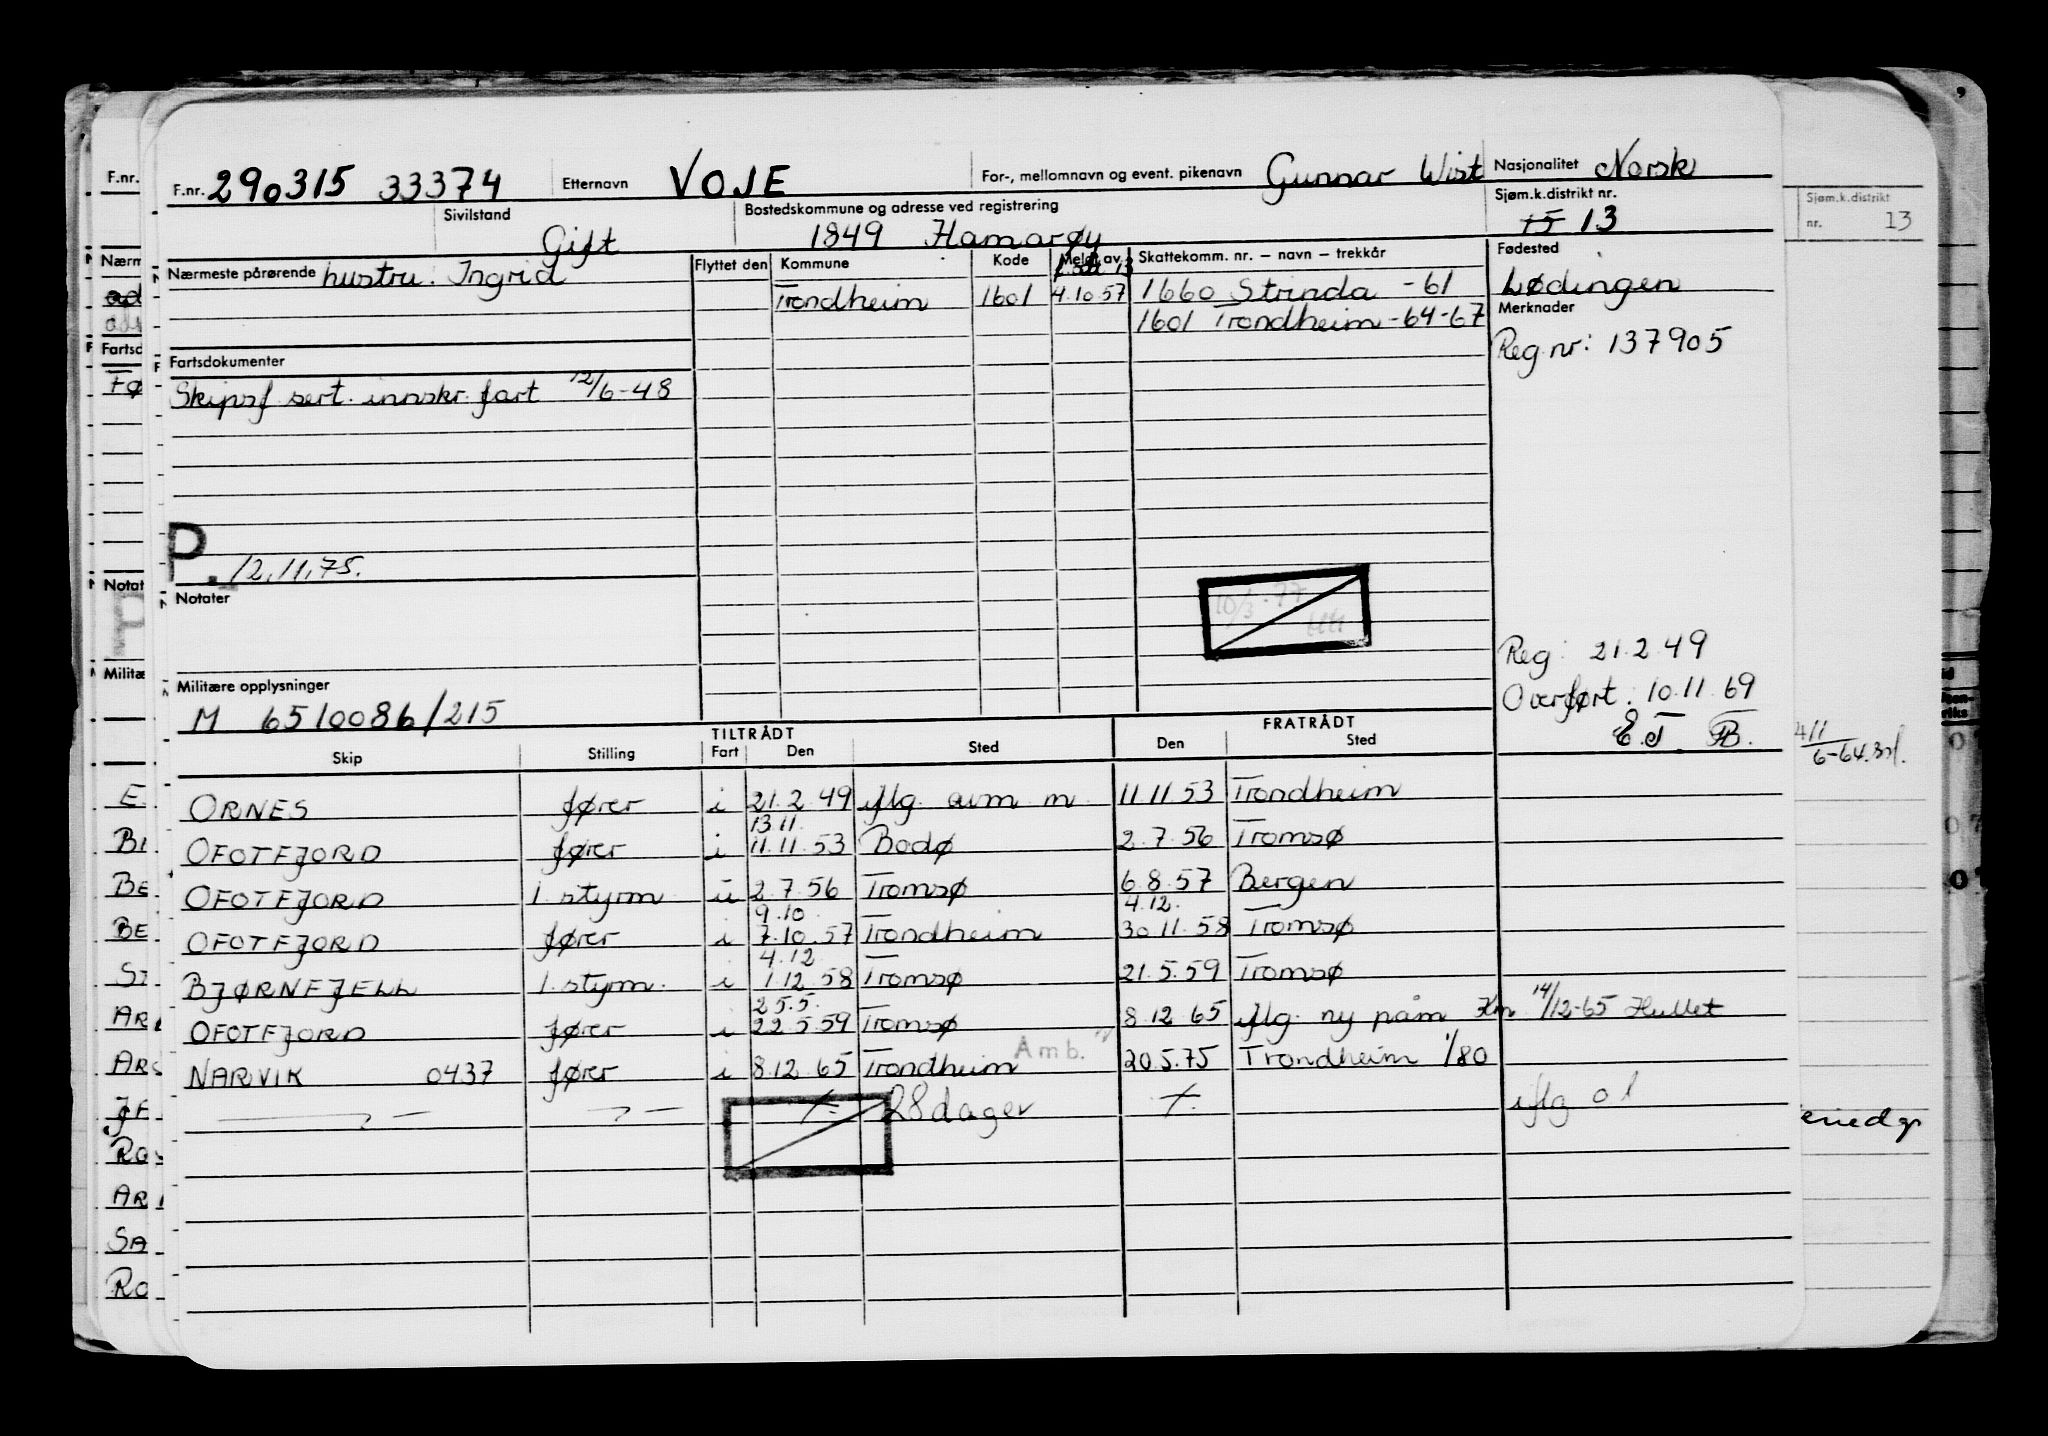 F.nr. 290315 33374 Etternavn VOJE For-, mellomnavn og event. pikenavn Gunnar Wist Nasjonalitet Norsk
Sivilstand Gift Bostedskommune og adresse ved registrering 1849 Hamarøy Sjøm.k.distrikt nr. 15 13
Sjøm.k.distrikt nr. 13
Nærmeste pårørende hustru: Ingrid Flyttet den Kommune Kode Meldt av Skattekomm. nr. – navn – trekkår Fødested
Trondheim 1601 4.10.57 1660 Strinda -61 Lødingen
1601 Trondheim -64-67 Merknader
Reg.nr: 137905
Fartsdokumenter
Skipsf sert. innskr. fart 12/6-48
P. 12.11.75.
Notater
10/3.77
Reg: 21.2.49
Militære opplysninger
Overført: 10.11.69
M 6510086/215
E.T.
TILTRÅDT FRATRÅDT
Skip Stilling Fart Den Sted Den Sted
ORNES fører i 21.2.49 iflg. avm m. 11.11.53 Trondheim
13.11.
OFOTFJORD fører i 11.11.53 Bodø 2.7.56 Tromsø
OFOTFJORD 1. styrm u 2.7.56 Tromsø 6.8.57 Bergen
9.10. 4.12.
OFOTFJORD fører i 7.10.57 Trondheim 30.11.58 Tromsø
4.12.
BJØRNFJELL 1. styrm. i 1.12.58 Tromsø 21.5.59 Tromsø
25.5.
OFOTFJORD fører i 22.5.59 Tromsø 8.12.65 iflg. ny påm 14/12-65 Hullet
Amb.
NARVIK 0437 fører i 8.12.65 Trondheim 20.5.75 Trondheim 1/80
28 dager iflg
F.nr.
Nærm
Fartsd
Notat
Militæ